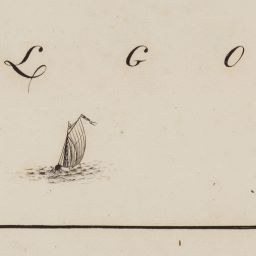 L G O